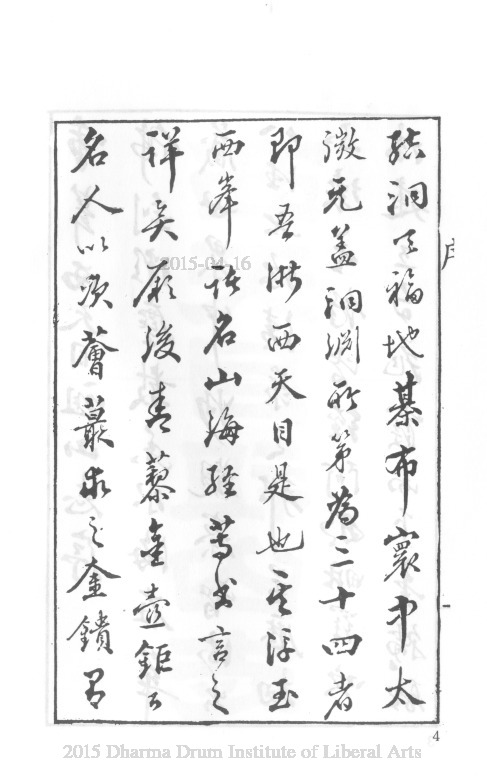 洞天福地棊布寰中太
微元盖洞淵所第為三十四者
即吾浙西天目是也其浮玉
西峯名山海經等書言之
詳矣厥後青藜金壺鉅公
名人以次薈蕞求之金鐀
序
2015-04-16
4
2015 Dharma Drum Institute of Liberal Arts